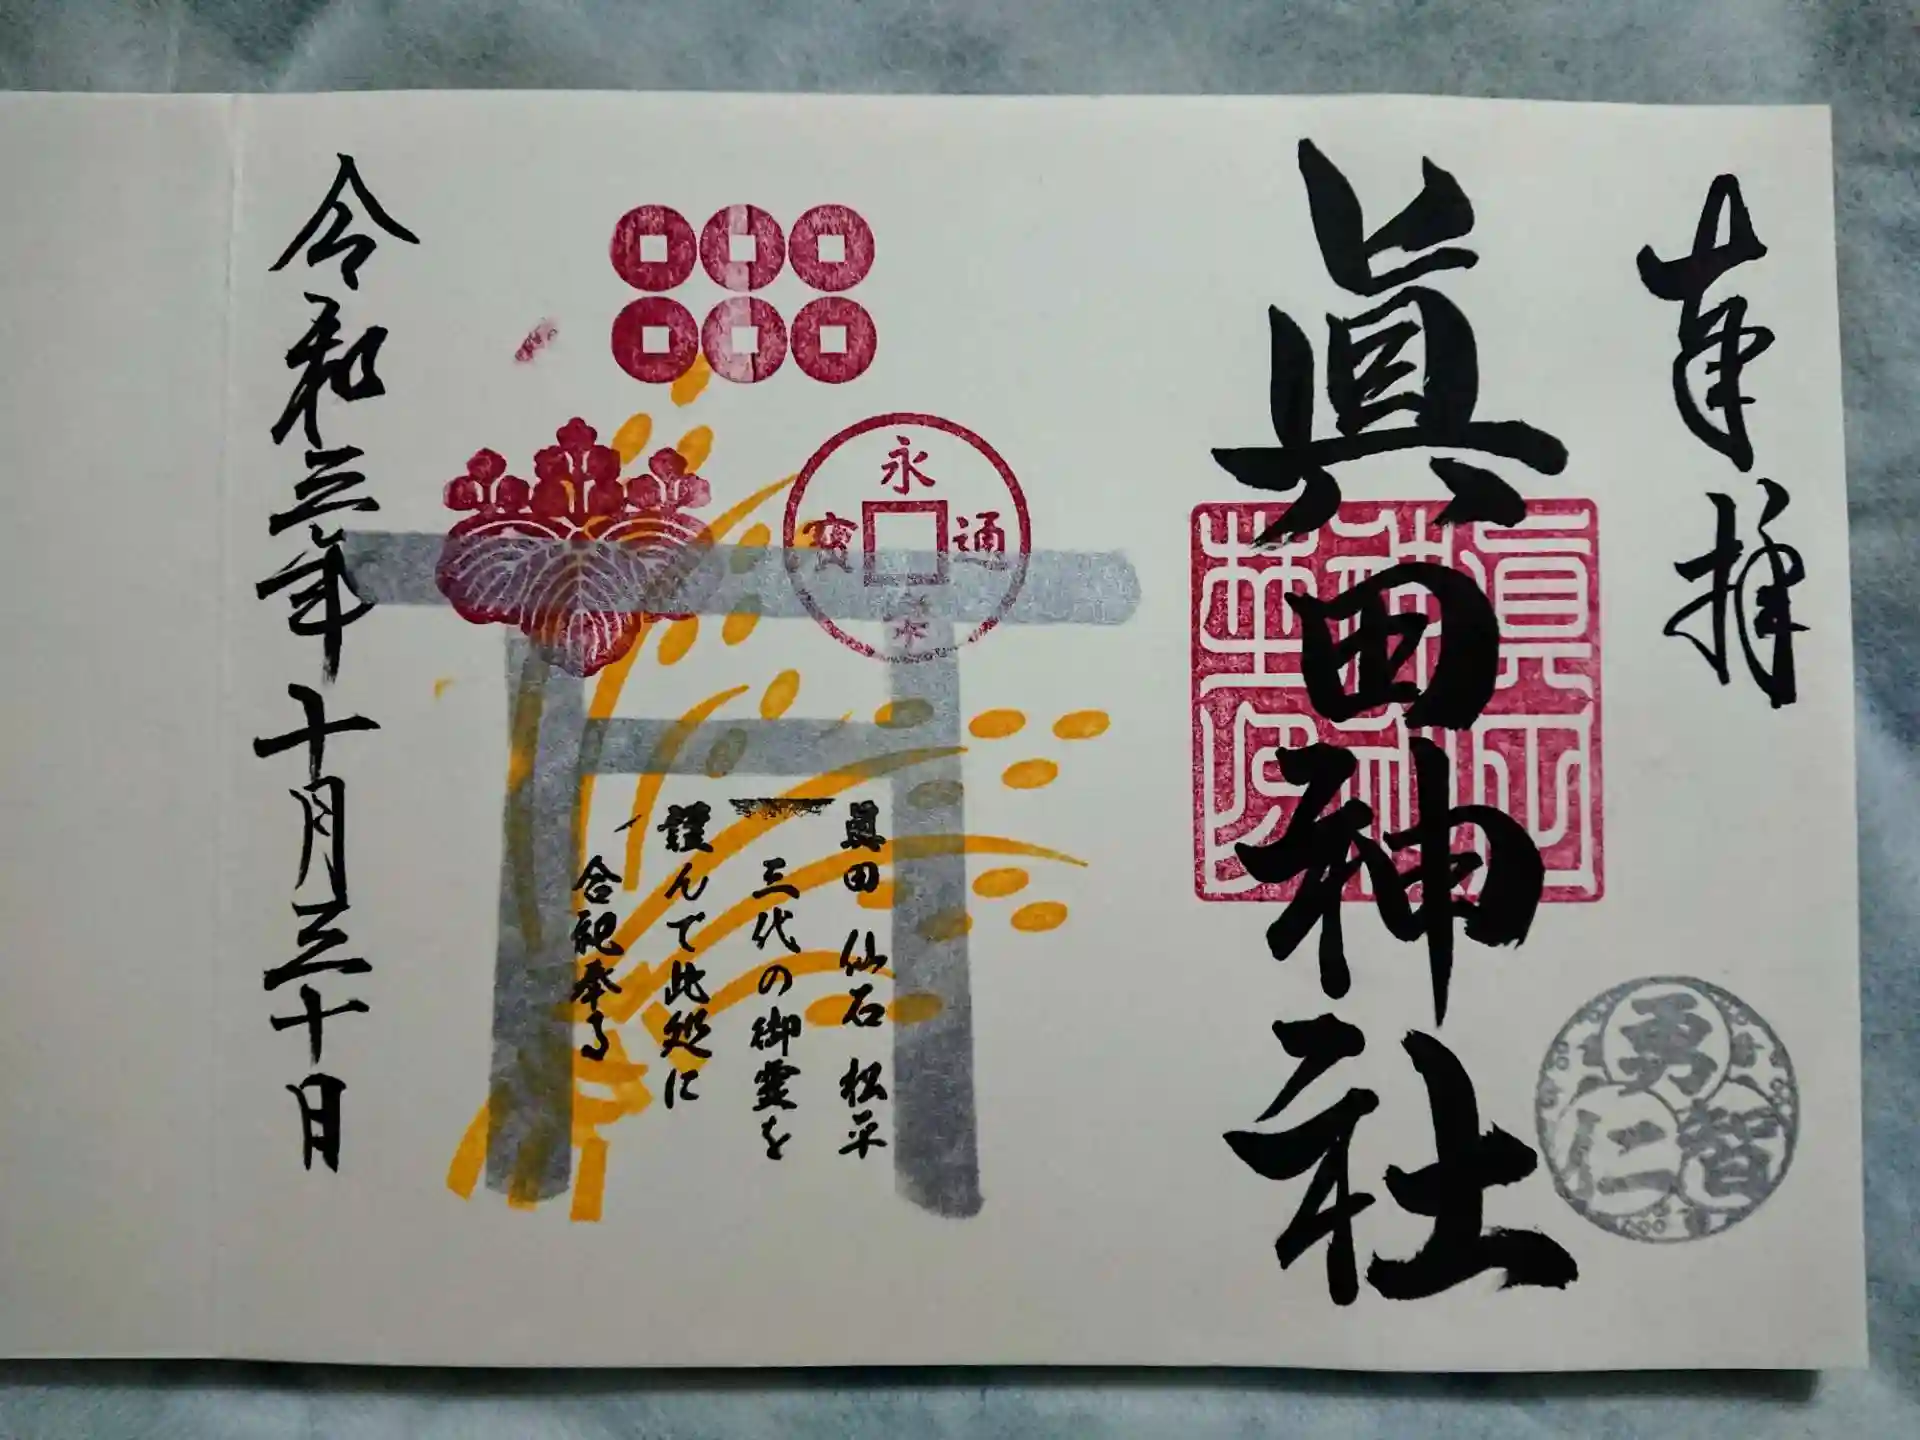 奉拝
眞田神社
勇
仁 智
永
寳 通
楽
眞田 仙石 松平
三代の御霊を
謹んで此処に
合祀奉る
令和三年十月三十日